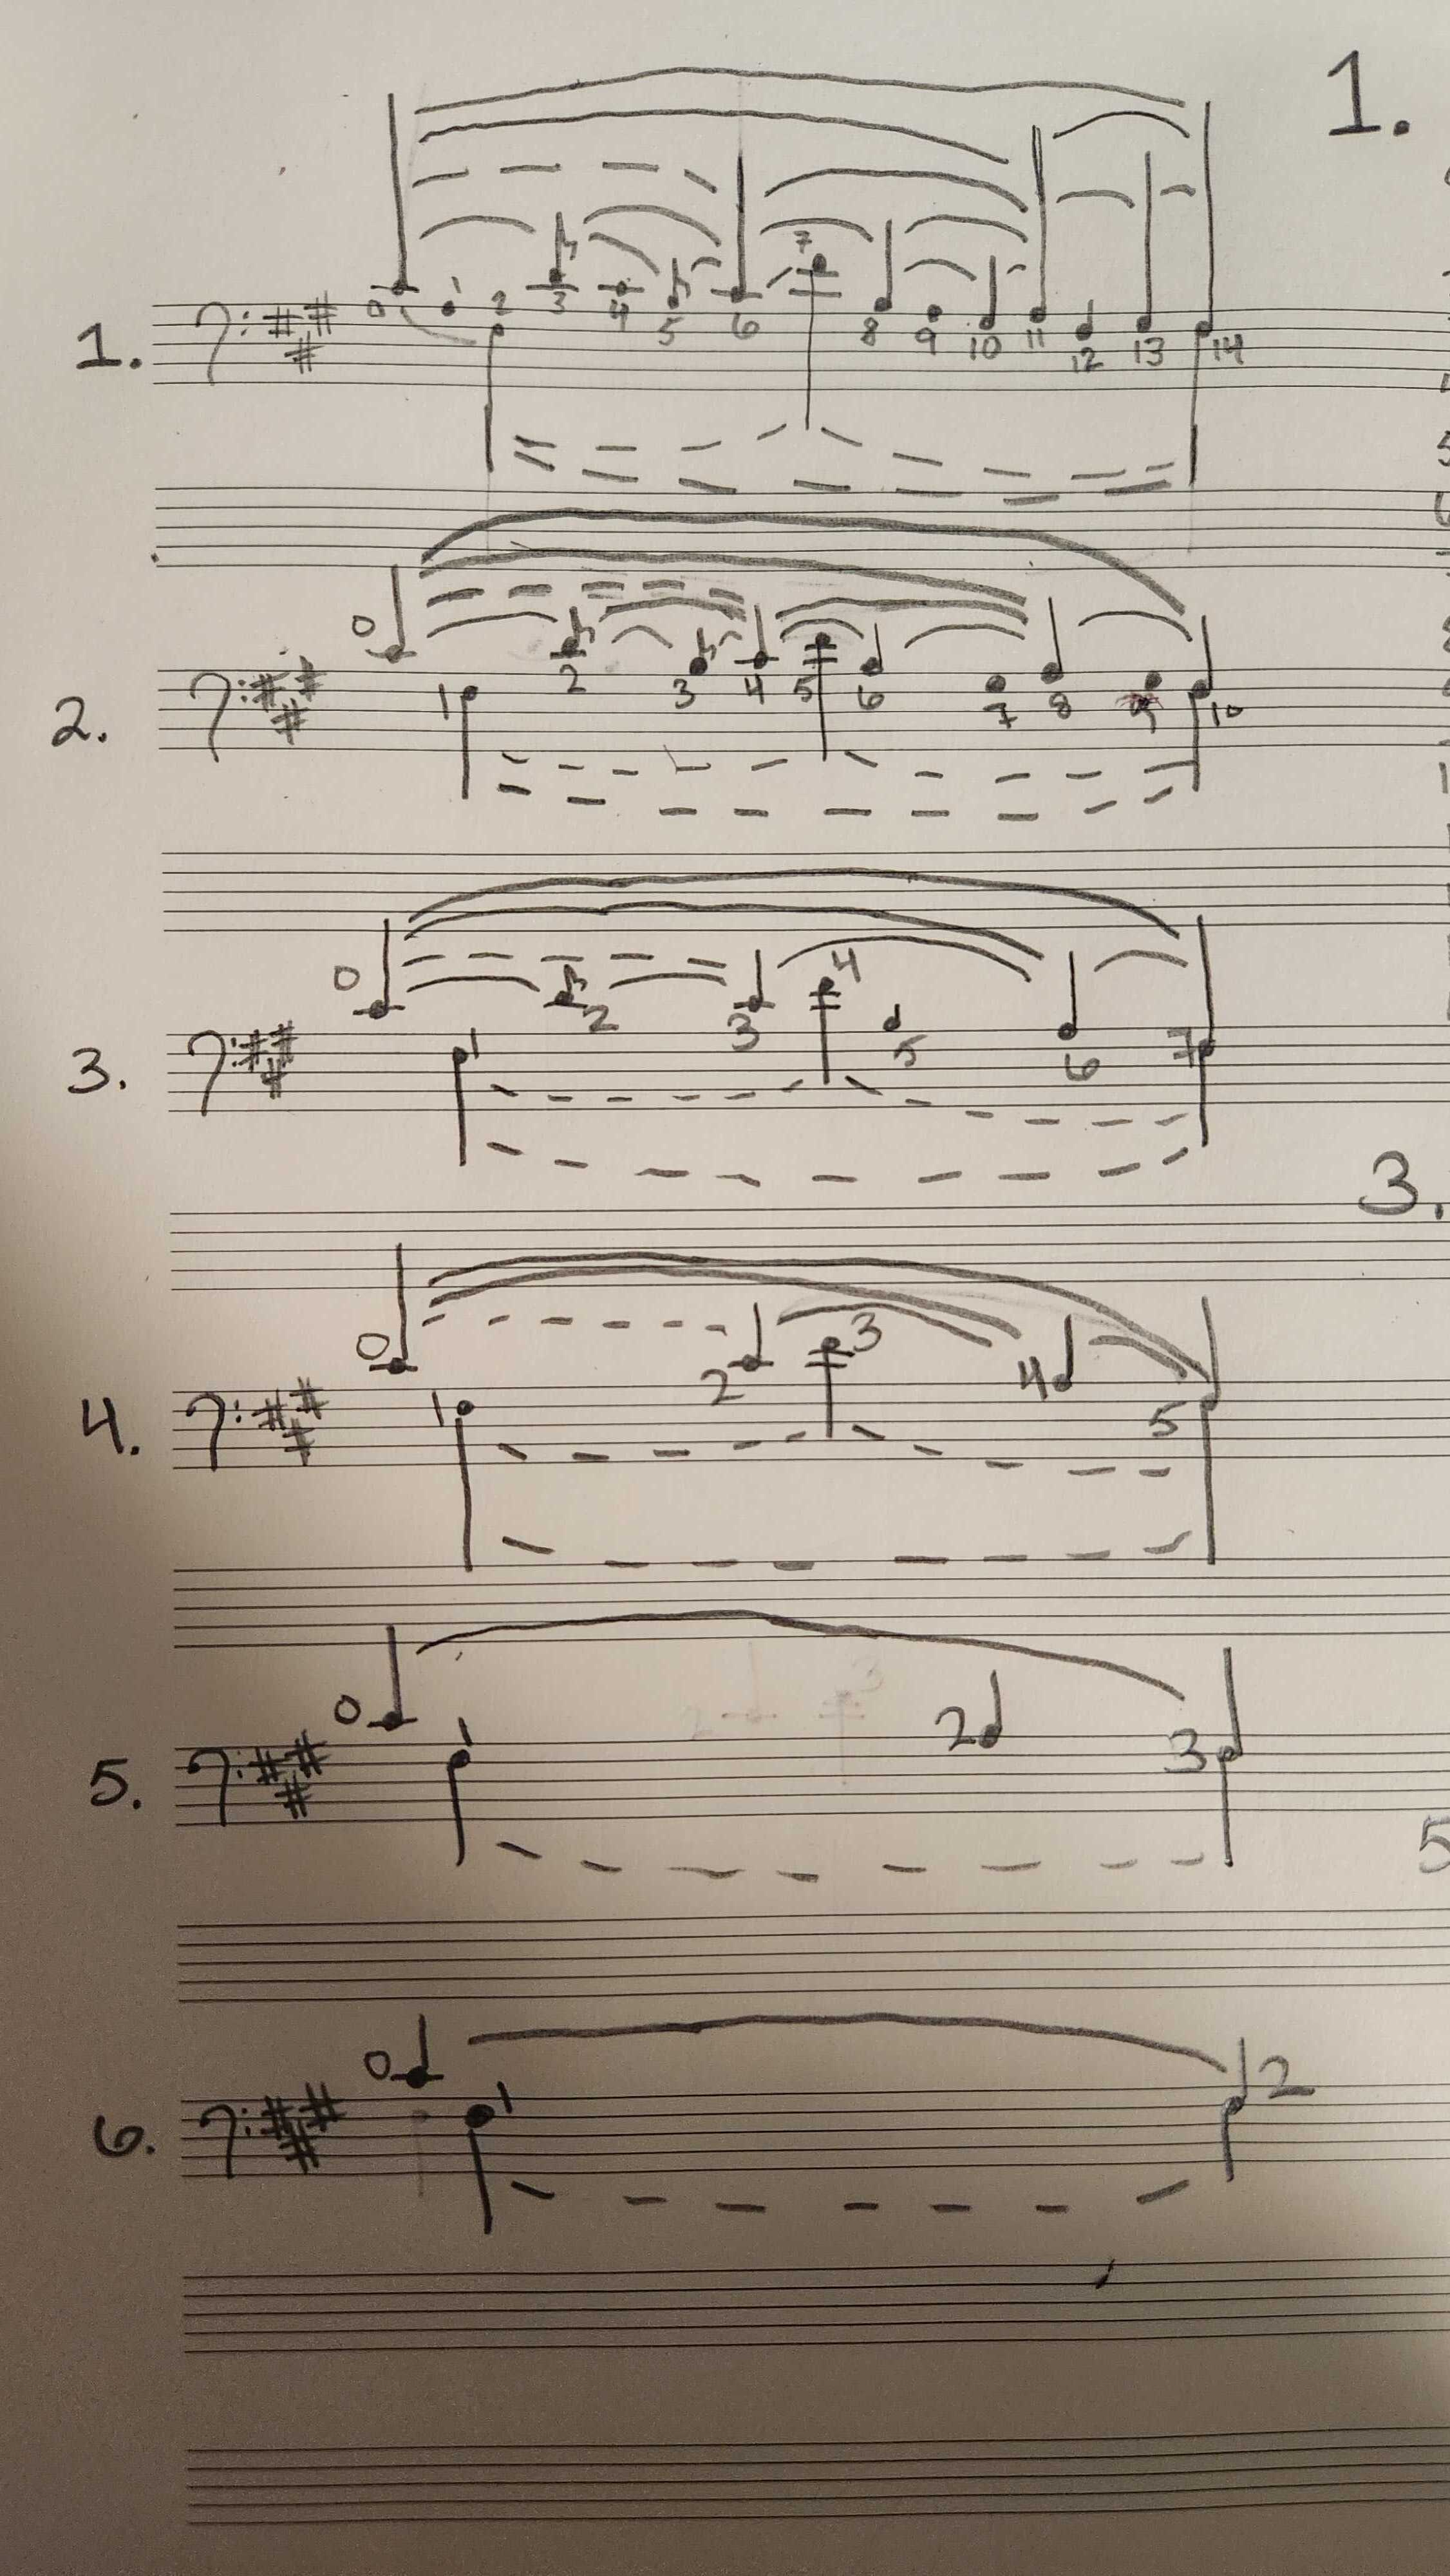 1.
7
0 1 2 3 4 5 6 8 9 10 11 12 13 14
1.
0
1 2 3 4 5 6 7 8 9 10
2.
0 4
1 2 3 5 6 7
3.
3.
0 3
1 2 4 5
4.
0 1 2 3
5.
5
0 1 2
6.